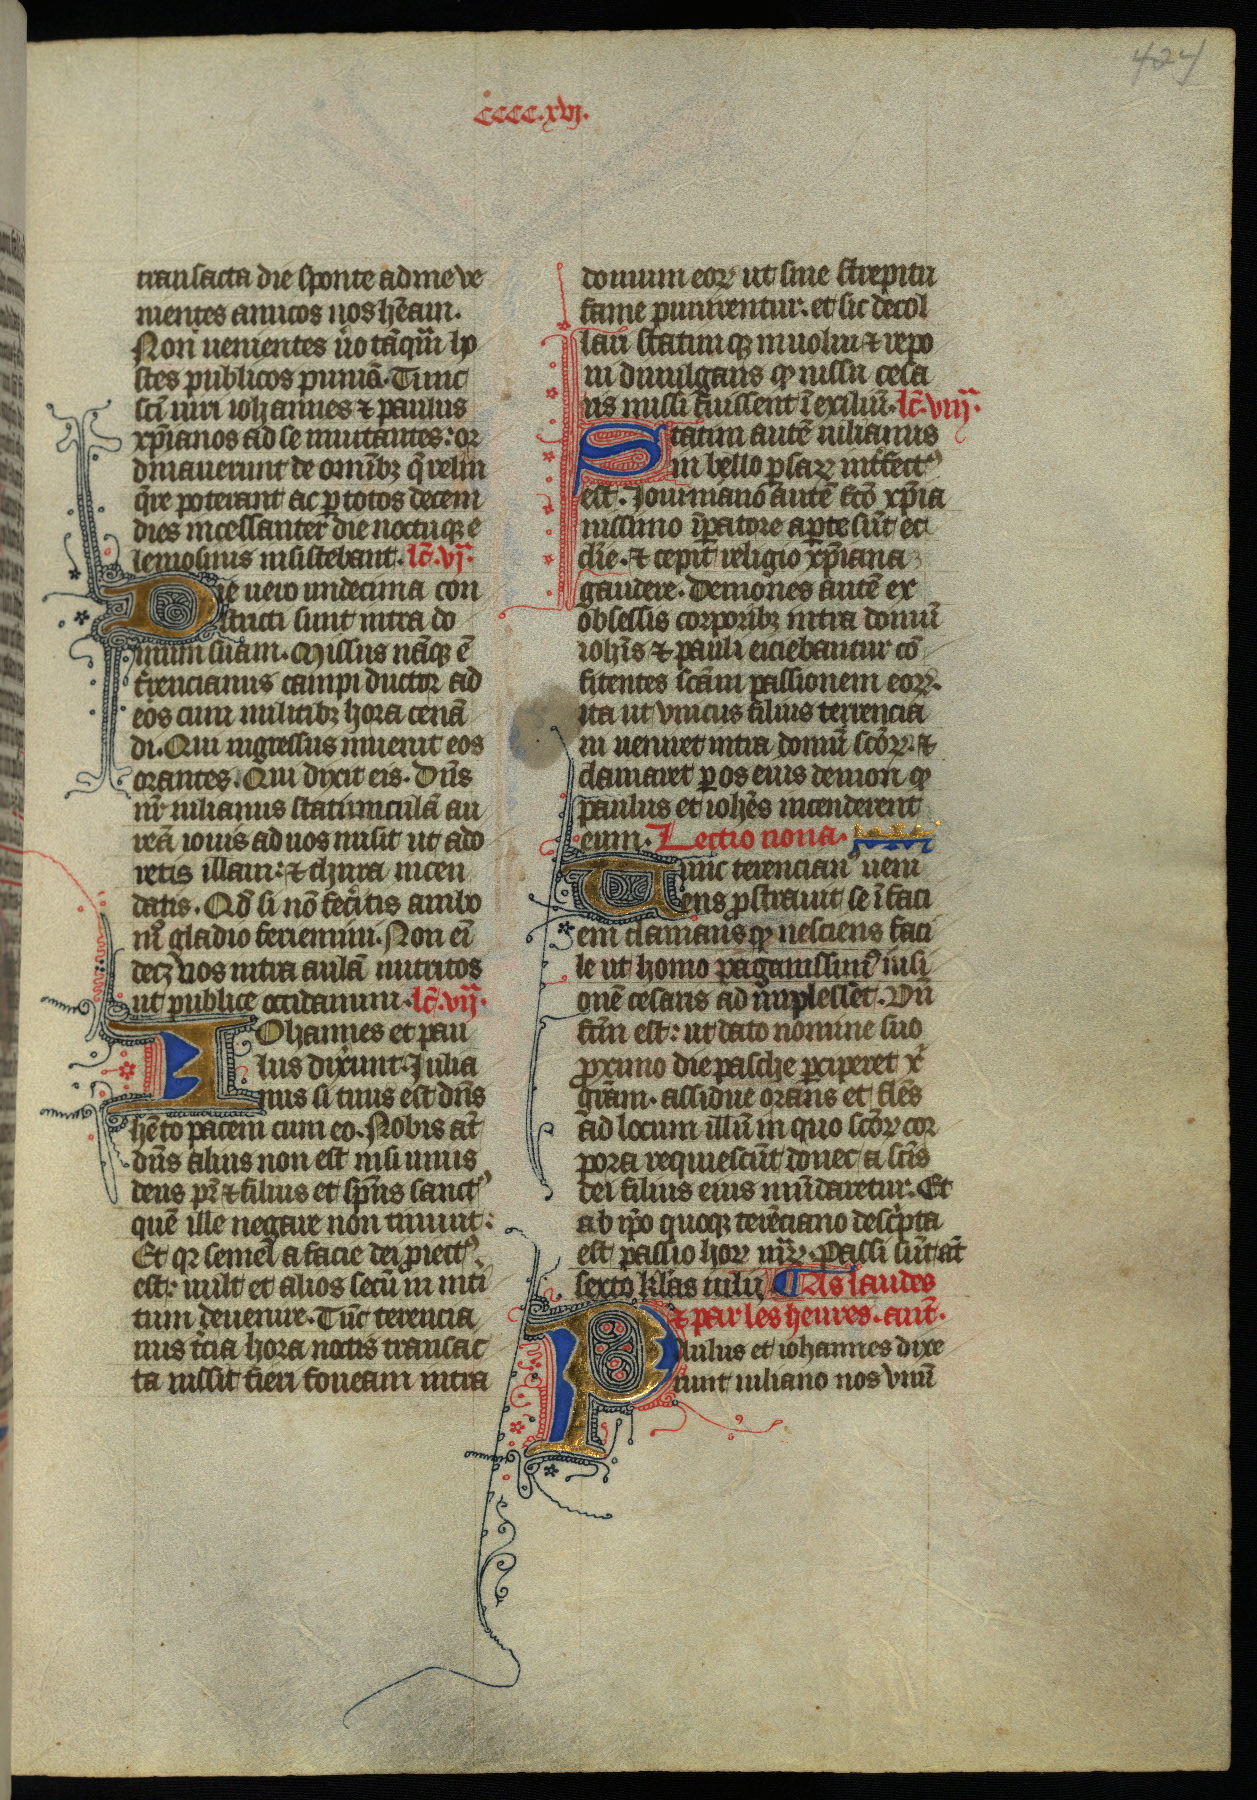 404
cccc.xvj.
transacta die sponte ad me ve
nientes amicos uos hēam.
Non uenientes ūo tāqm̄ ho
stes publicos puniā. Tunc
sc̄i uiri iohannes ⁊ paulus
xp̄ianos ad se inuitantes: or
dinauerunt de omībꝫ q̄ relin
q̄re poterant ac ꝑ totos decem
dies incessanter die noctuqꝫ e
lemosinis insistebant. lc̄. vj.
Die uero undecima con
stricti sunt intra do
mum suam. Missus nāqꝫ ē
t̄rencianus campi ductor ad
eos cum militibꝫ hora cenā
di. Qui ingressus inuenit eos
orantes. Qui dixit eis. Dn̄s
nr̄ iulianus statūnculā au
reā iouis ad uos misit ut ado
retis illam: ⁊ thura incen
datis. Qd̄ si nō fec̄itis ambo
gladio feriemini. Non eī
decꝫ uos intra aulā nutritos
ut publice occidamini. lc̄. vij.
Iohannes et pau
lus dixr̄unt. Julia
nus si tuus est dn̄s
hēto pacem cum eo. Nobis at̄
dn̄s alius non est nisi unus
deus pr̄ ⁊ filius et sp̄us sanctꝰ
quē ille negare non timuit:
Et qr semel a facie dei proiectꝰ
est: uult et alios secū in inti
tum deuenire. Tūc terencia
nus t̄cia hora noctis transac
ta iussit fieri foueam intra
domum eoꝝ ut sine strepitu
fame punirentur. et sic decol
lati statim qꝫ inuoluti ⁊ repo
iti diuulgans qꝫ iussu cesa
ris missi fuissent ī exiliū. lc̄. viij.
Statim autē iulianus
in bello ꝑsaꝝ int̄fectꝰ
est. Jouiniano autē fc̄o xp̄ia
nissimo īpatore aꝑte sūt ec
cl̄ie. ⁊ cepit religio xp̄iana
gaudere. Demones autē ex
obsessis corporibꝫ intra domū
ioh̄is ⁊ pauli eiciebantur cō
fitentes sc̄am passionem eoꝝ.
ita ut vnicus filius terrencia
ni ueniret intra domū sc̄oꝝ. ⁊
clamaret ꝑ os eius demon qꝫ
paulus et ioh̄es incenderent
eum. Lectio nona.
Tunc terencianꝰ ueni
ens ꝓstrauit se ī faci
em clamans qꝫ nesciens faci
le ut homo paganissimꝰ iussi
onē cesaris ad implesset. Dū
ctūn est: ut dato nomine suo
ꝓximo die pasche ꝑciperet xi
gr̄am. assidue orans et flēs
ad locum illū in quo sc̄oꝝ cor
pora requiescūt donec a sc̄is
dei filius eius mūdaretur. Et
ab ip̄o quoqꝫ terēciano desc̄pta
est passio hoꝝ viꝝ. Passi sūt at̄
sexto kl̄as iulij. ¶ As laudes
⁊ par les heures. ant̄.
Paulus et iohannes dixe
runt iuliano nos vnū